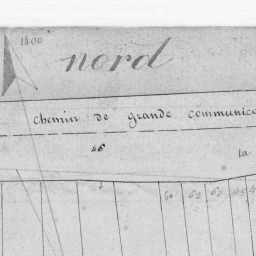 1400
nord
chemin de grande communica
26
la
60 62 63